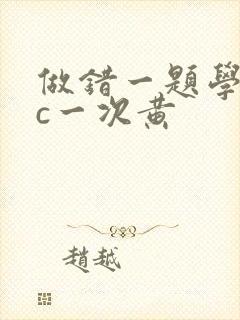 做錯一題學
c一次黃
趙越